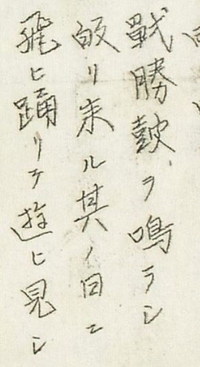 戦勝鼓ヲ鳴ラシ
皈リ来ル其ノ日ニ
飛ヒ踊リテ遊ヒ見シ